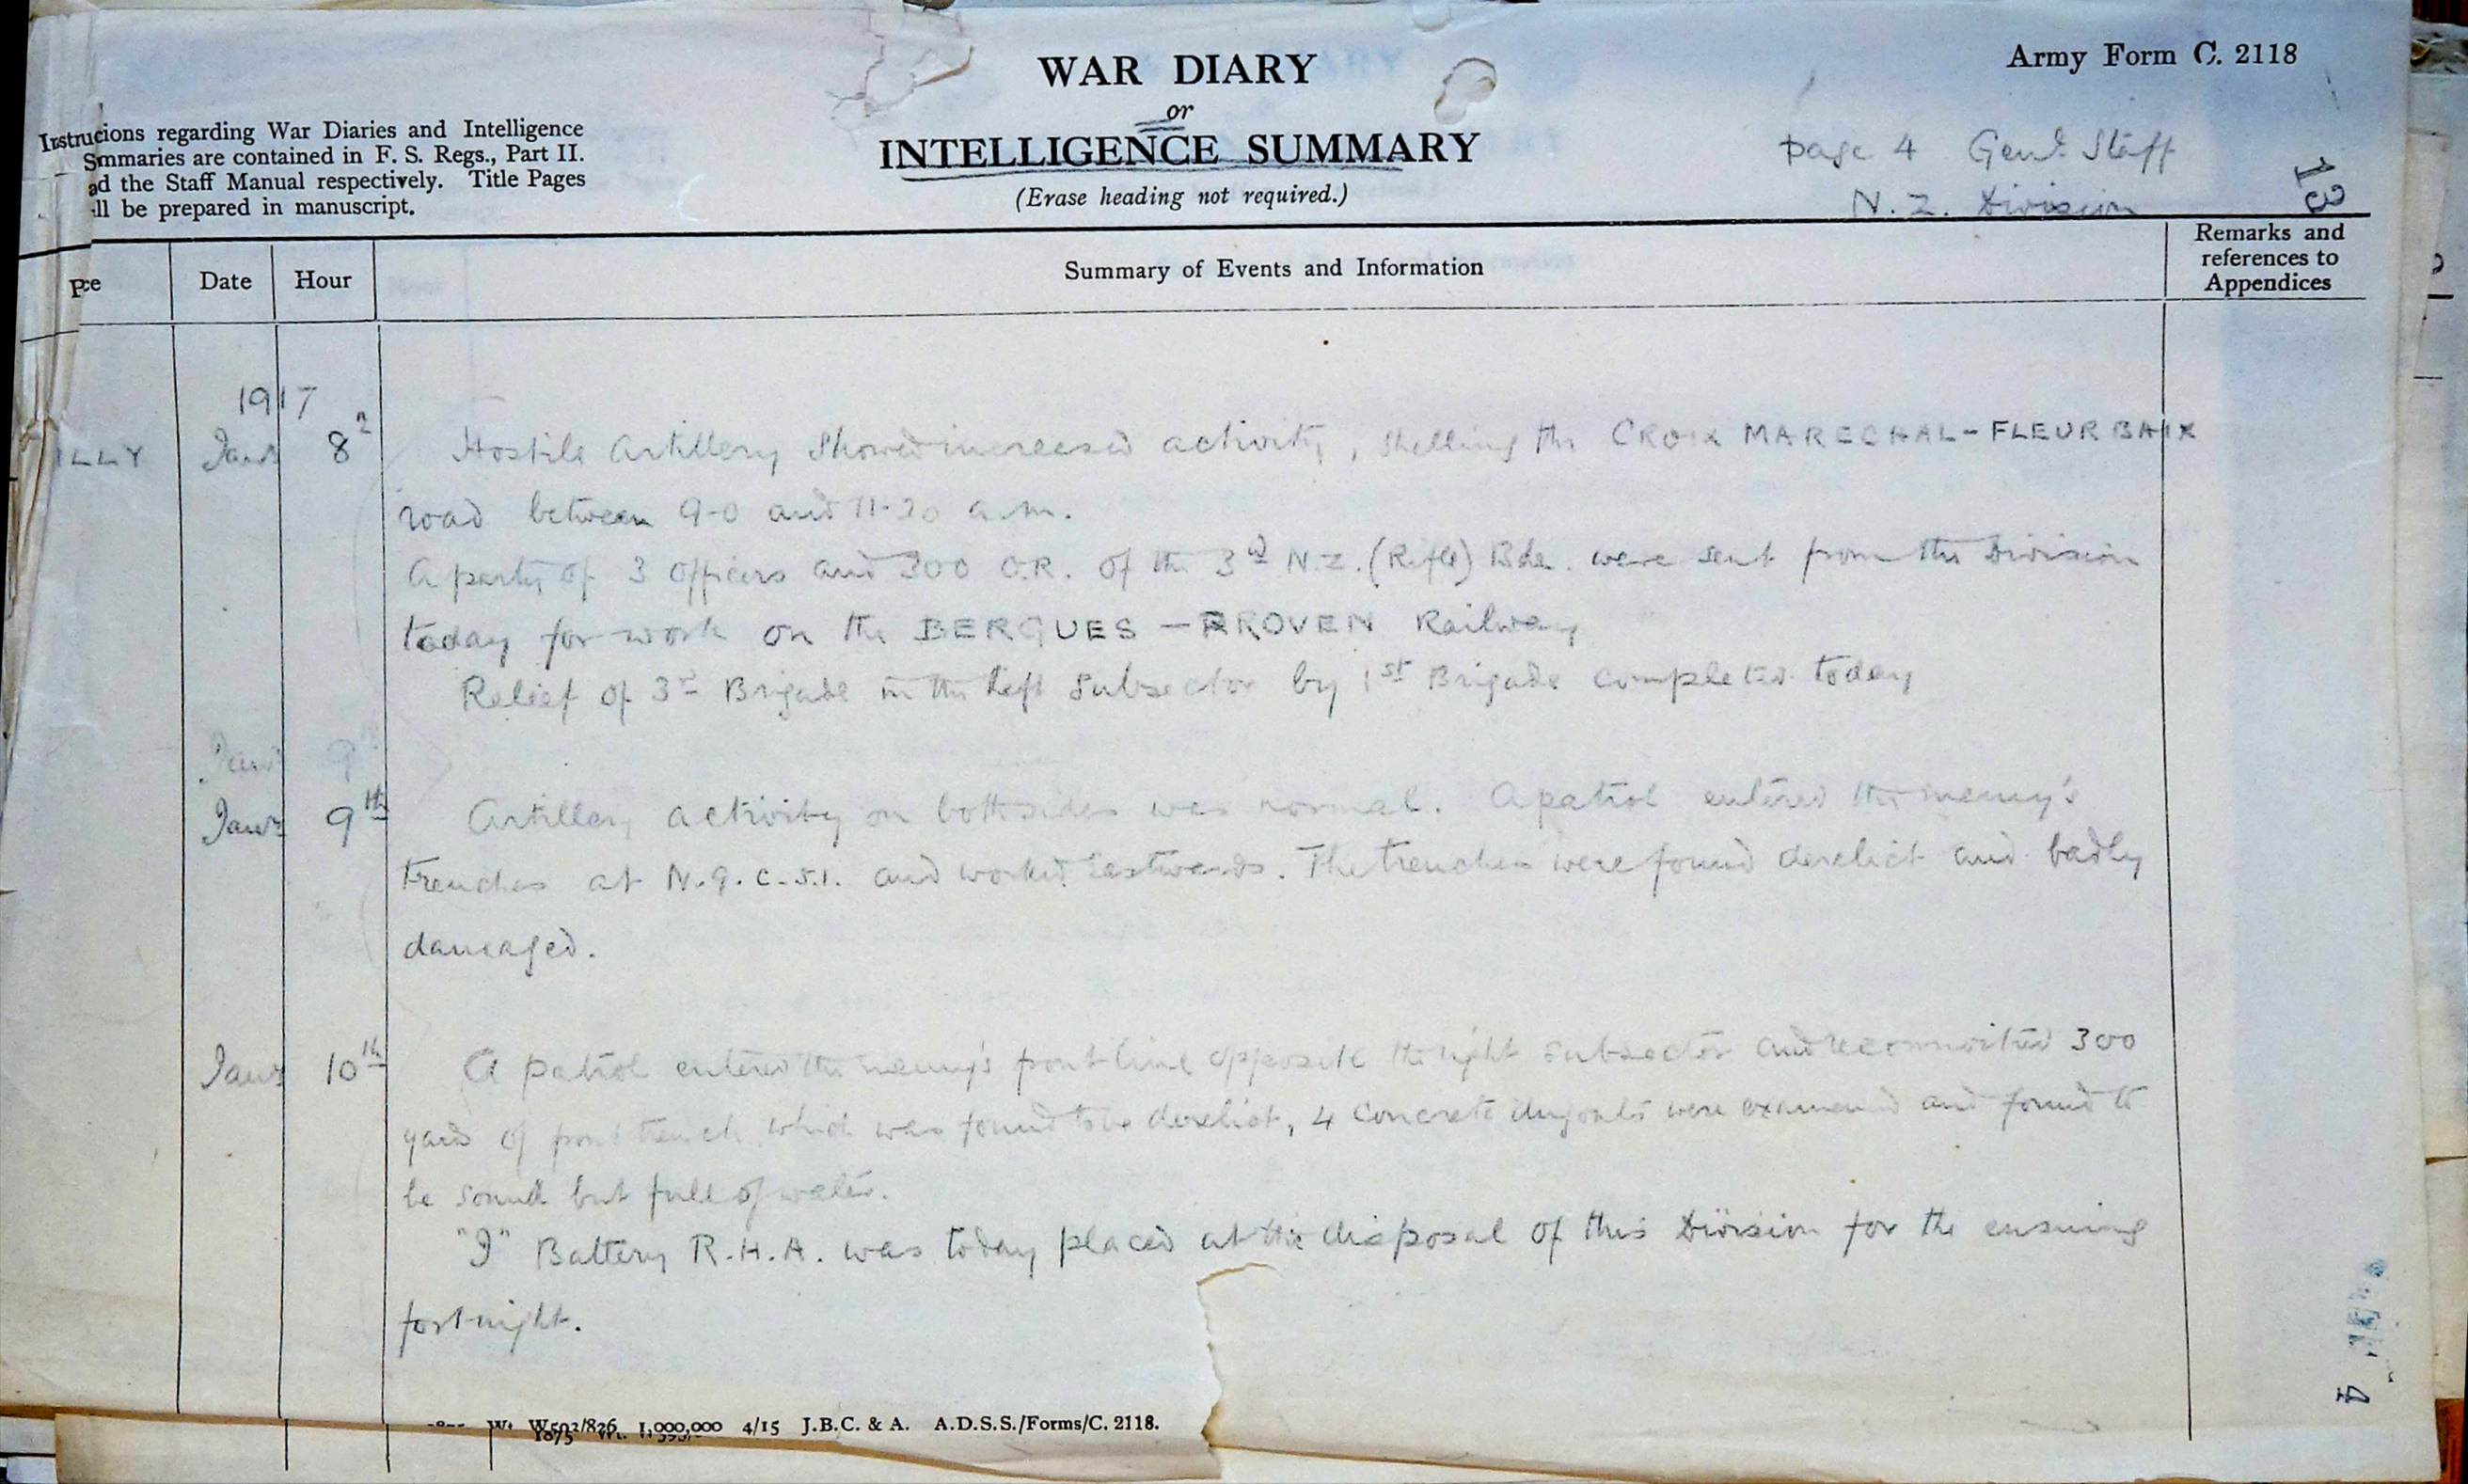 Army Form C. 2118
WAR DIARY
or
INTELLIGENCE SUMMARY
(Erase heading not required.)
Instrucions regarding War Diaries and Intelligence
Smmaries are contained in F. S. Regs., Part II.
ad the Staff Manual respectively. Title Pages
ill be prepared in manuscript.
page 4 Genl. Staff
N. Z. Division
13
Pce Date Hour Summary of Events and Information Remarks and
references to
Appendices
1917
ILLY Jany 8 Hostile Artillery showed increased activity, shelling the CROIX MARECHAL-FLEURBAIX
road between 9-0 and 11-30 a.m.
A party of 3 officers and 300 O.R. of the 3rd N.Z. (Rifle) Bde. were sent from the Division
today for work on the BERGUES - PROVEN Railway
Relief of 3rd Brigade in the Left Subsector by 1st Brigade completed today
Jany 9
Jany 9th Artillery activity on both sides was normal. A patrol entered the enemy's
trenches at N.9.c.5.1. and worked Eastwards. The trenches were found derelict and badly
damaged.
Jany 10th A patrol entered the enemy's front line opposite the right subsector and reconnoitred 300
yards of front trench which was found to be derelict, 4 concrete dugouts were examined and found to
be sound but full of water.
"I" Battery R.H.A. was today placed at the disposal of this Division for the ensuing
fortnight.
Wt. W593/826 1,000,000 4/15 J.B.C. & A. A.D.S.S./Forms/C. 2118.
1875
4